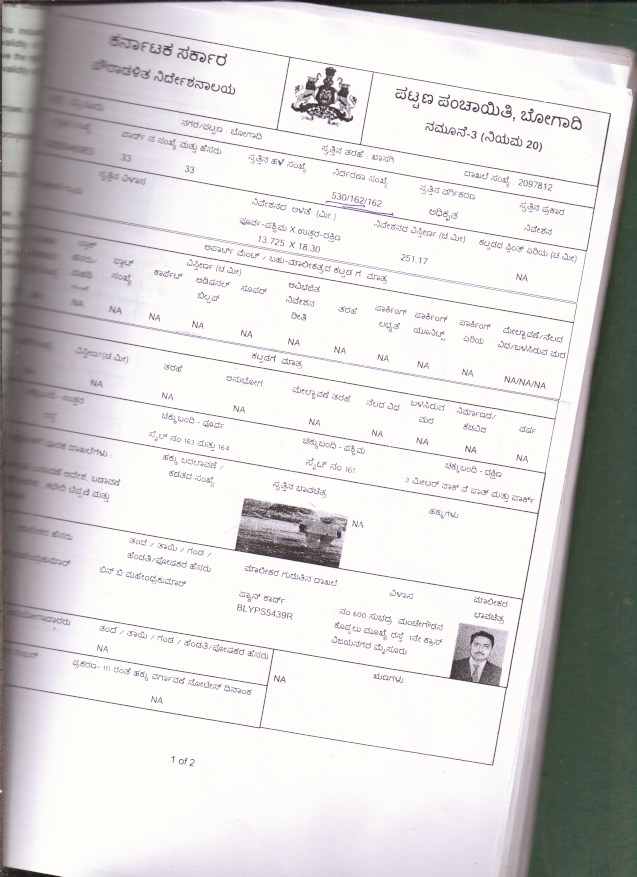 ಕರ್ನಾಟಕ ಸರ್ಕಾರ
ಪೌರಾಡಳಿತ ನಿರ್ದೇಶನಾಲಯ
ಪಟ್ಟಣ ಪಂಚಾಯಿತಿ, ಬೋಗಾದಿ
ನಮೂನೆ-3 (ನಿಯಮ 20)
ನಗರ/ಪಟ್ಟಣ : ಬೋಗಾದಿ
ಸ್ವತ್ತಿನ ತರಹೆ : ಖಾಸಗಿ
ದಾಖಲೆ ಸಂಖ್ಯೆ : 2097812
ವಾರ್ಡ್ ನ ಸಂಖ್ಯೆ ಮತ್ತು ಹೆಸರು
ಸ್ವತ್ತಿನ ಹಳೆ ಸಂಖ್ಯೆ
ನಿರ್ದರಣಾ ಸಂಖ್ಯೆ
ಸ್ವತ್ತಿನ ವರ್ಗೀಕರಣ
ಸ್ವತ್ತಿನ ಪ್ರಕಾರ
33
33
530/162/162
ಅಧಿಕೃತ
ನಿವೇಶನ
ಸ್ವತ್ತಿನ ವಿಳಾಸ
ನಿವೇಶನದ ಅಳತೆ (ಮೀ)
ನಿವೇಶನದ ವಿಸ್ತೀರ್ಣ (ಚ.ಮೀ)
ಕಟ್ಟಡದ ಪ್ಲಿಂತ್ ಏರಿಯ (ಚ ಮೀ)
ಪೂರ್ವ-ಪಶ್ಚಿಮ X ಉತ್ತರ-ದಕ್ಷಿಣ
13.725 X 18.30
251.17
NA
ಅಪಾರ್ಟ್ ಮೆಂಟ್ / ಬಹು-ಮಾಲೀಕತ್ವದ ಕಟ್ಟಡ ಗೆ ಮಾತ್ರ
ಫ್ಲಾಟ್ ಸಂಖ್ಯೆ
ವಿಸ್ತೀರ್ಣ (ಚ ಮೀ)
ಕಾರ್ಪೆಟ್
ಅಡಿಷನಲ್ ಬಿಲ್ಟಪ್
ಸೂಪರ್
ಅವಿಭಜಿತ ನಿವೇಶನ ರೀತಿ
ತರಹೆ
ಪಾರ್ಕಿಂಗ್ ಲಭ್ಯತೆ
ಪಾರ್ಕಿಂಗ್ ಯೂನಿಟ್ಸ್
ಪಾರ್ಕಿಂಗ್ ಏರಿಯ
ಮೇಲ್ಛಾವಣಿ/ನೆಲದ ವಿಧ/ಬಳಸಿರುವ ಮರ
NA NA NA NA NA NA NA NA NA NA/NA/NA
ಕಟ್ಟಡಗೆ ಮಾತ್ರ
ವಿಸ್ತೀರ್ಣ(ಚ.ಮೀ)
ತರಹೆ
ಅನುಭೋಗ
ಮೇಲ್ಛಾವಣೆ ತರಹೆ
ನೆಲದ ವಿಧ
ಬಳಸಿರುವ ಮರ
ನಿರ್ಮಾಣದ/ ಕೆಡವಿದ
ವರ್ಷ
NA NA NA NA NA NA NA NA
ಚಕ್ಕುಬಂದಿ - ಪೂರ್ವ
ಚಕ್ಕುಬಂದಿ - ಪಶ್ಚಿಮ
ಚಕ್ಕುಬಂದಿ - ದಕ್ಷಿಣ
ಸೈಟ್ ನಂ 163 ಮತ್ತು 164
ಸೈಟ್ ನಂ 161
3 ಮೀಟರ್ ವಾಕ್ ವೆ ಪಾತ್ ಮತ್ತು ಪಾರ್ಕ್
ಹಕ್ಕು ಬದಲಾವಣೆ / ಕಡತದ ಸಂಖ್ಯೆ
ಸ್ವತ್ತಿನ ಭಾವಚಿತ್ರ
ಹಕ್ಕುಗಳು
NA
ತಂದೆ / ತಾಯಿ / ಗಂಡ / ಹೆಂಡತಿ/ಪೋಷಕರ ಹೆಸರು
ಮಾಲೀಕರ ಗುರುತಿನ ದಾಖಲೆ
ವಿಳಾಸ
ಮಾಲೀಕರ ಭಾವಚಿತ್ರ
ಬಿನ್ ಬಿ ಮಹೇಂದ್ರಕುಮಾರ್
ಪ್ಯಾನ್ ಕಾರ್ಡ್
BLYPS5439R
ನಂ 600 ಸುಭದ್ರ ಮಂಚೇಗೌಡನ
ಕೊಪ್ಪಲು ಮುಖ್ಯ ರಸ್ತೆ 1ನೇ ಕ್ರಾಸ್
ವಿಜಯನಗರ ಮೈಸೂರು
ತಂದೆ / ತಾಯಿ / ಗಂಡ / ಹೆಂಡತಿ/ಪೋಷಕರ ಹೆಸರು
NA
NA
ಋಣಗಳು
ಪ್ರಕರಣ- 111 ರಂತೆ ಹಕ್ಕು ವರ್ಗಾವಣೆ ನೋಟೀಸ್ ದಿನಾಂಕ
NA
1 of 2